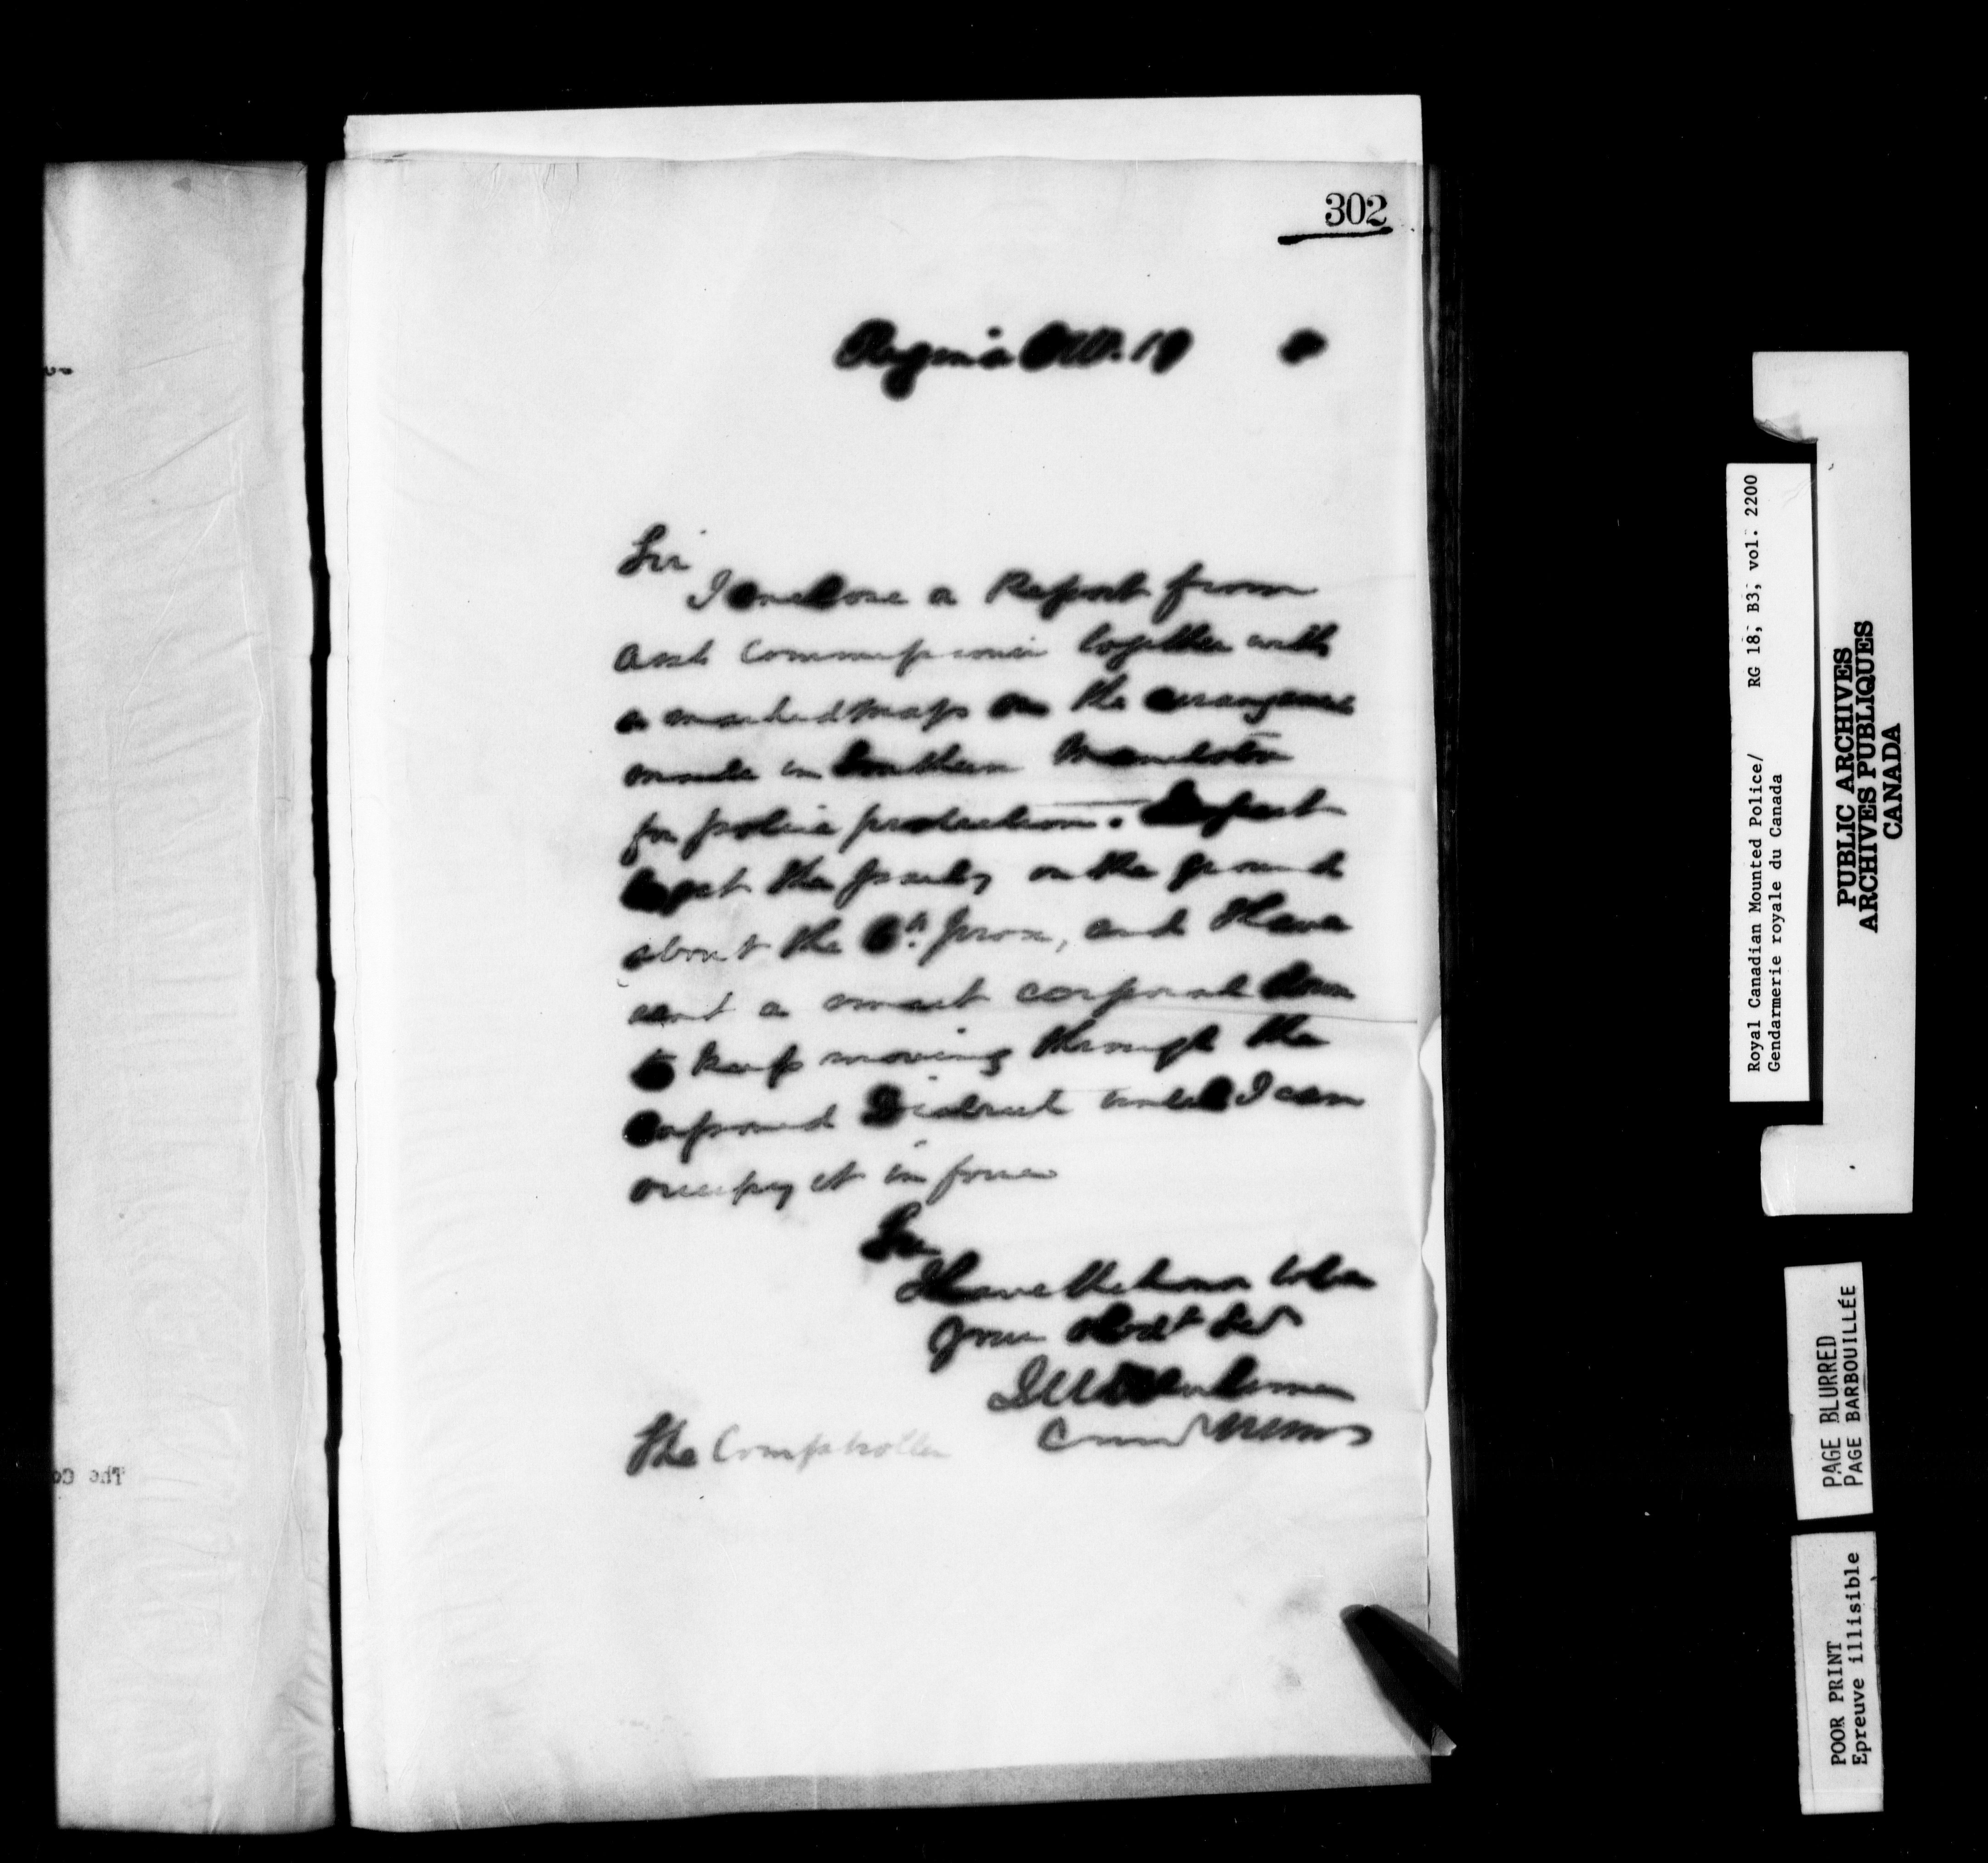 302
Regina Oct. 19
Sir
I enclose a Report from
Asst Commissioner together with
a marked map on the arrangement
made in Southern Manitoba
for police protection. Expect
to get the party on the ground
about the 6th prox, and Have
sent a smart corporal down
to keep moving through the
exposed District until I can
occupy it in force
Sir
I Have the honor to be
Your Obdt Sert
The Comptroller
The Co
Royal Canadian Mounted Police/ RG 18, B3, vol. 2200
Gendarmerie royale du Canada
PUBLIC ARCHIVES
ARCHIVES PUBLIQUES
CANADA
PAGE BLURRED
PAGE BARBOUILLÉE
POOR PRINT
Epreuve illisible